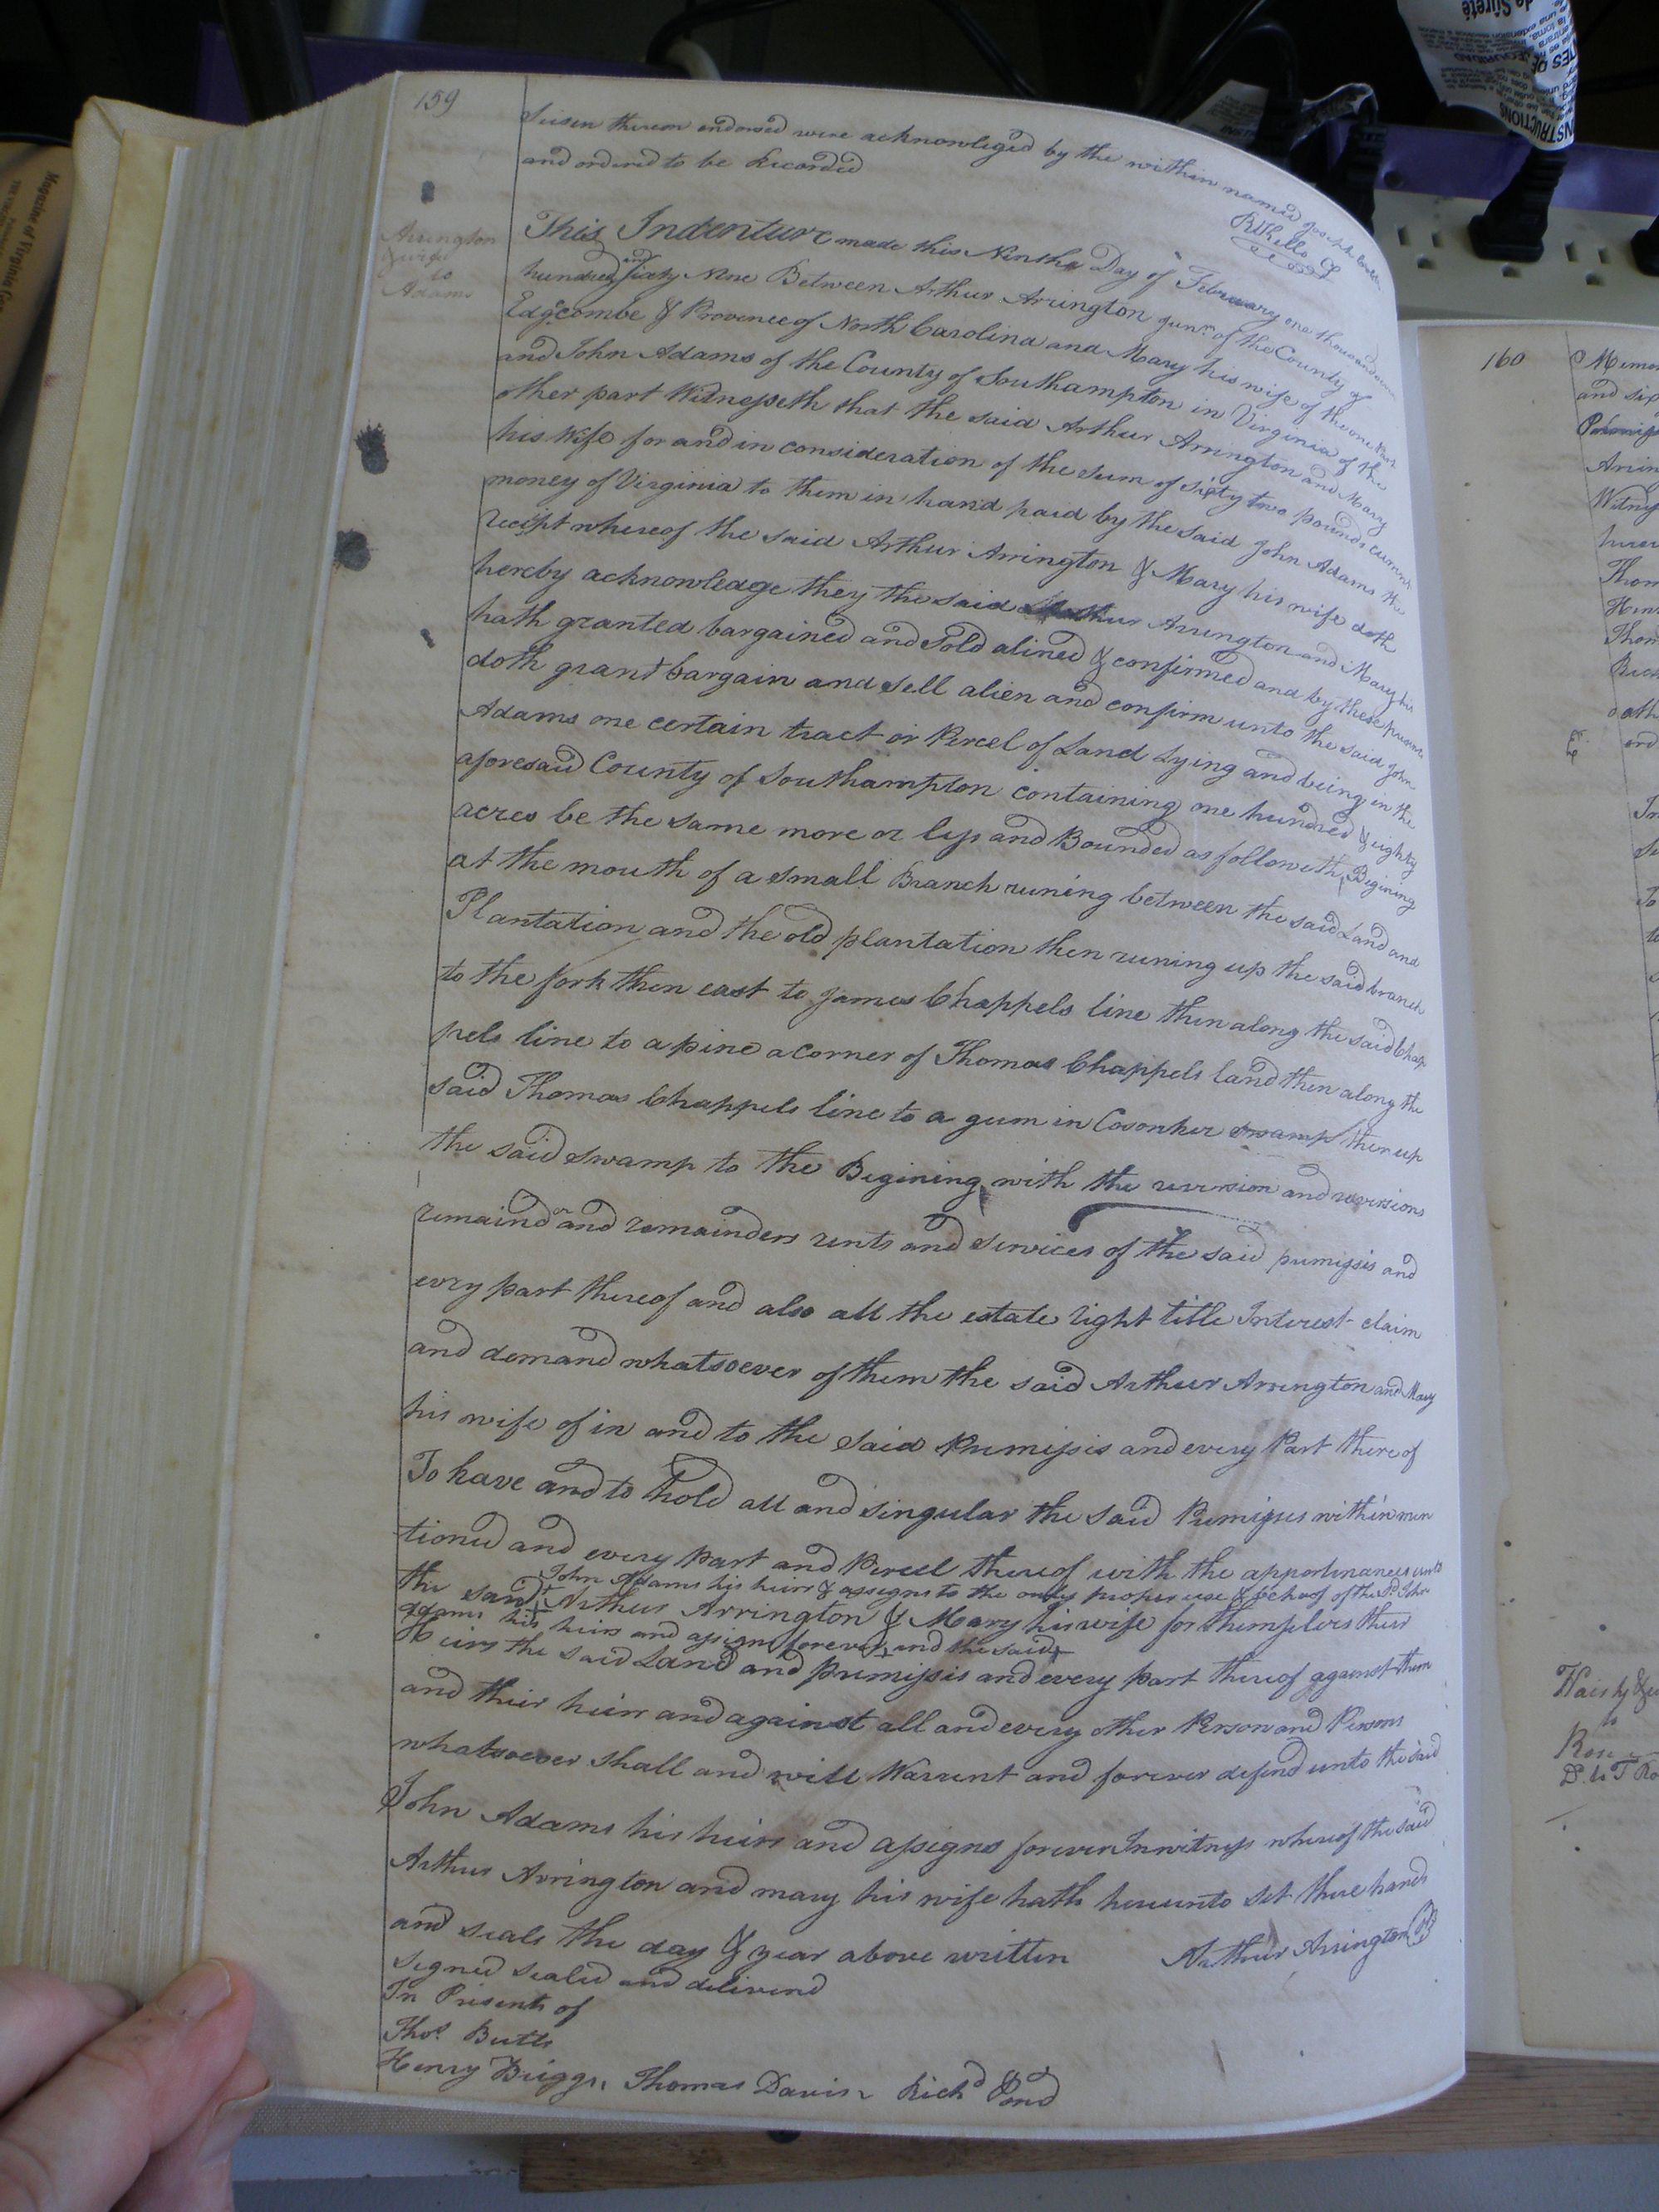 159
Seisen thereon endorsed were acknowleged by the within named Joseph
and ordered to be Recorded
Arrington
to
Adams
This Indenture made this Ninth Day of February one thousand
hundred and Sixty Nine Between Arthur Arrington Junr. of the County of
Edgcombe & Province of North Carolina and Mary his wife of the one Part
and John Adams of the County of Southampton in Virginia of the
other part Witnesseth that the said Arthur Arrington and Mary
his Wife for and in consideration of the sum of sixty two pounds current
money of Virginia to them in hand paid by the said John Adams the
receipt whereof the said Arthur Arrington & Mary his wife doth
hereby acknowledge they the said Arthur Arrington and Mary his
hath granted bargained and Sold alined & confirmed and by these presents
doth grant bargain and sell alien and confirm unto the said John
Adams one certain tract or Percel of Land Lying and being in the
aforesaid County of Southampton containing one hundred & eighty
acres be the same more or less and Bounded as followeth, Begining
at the mouth of a small Branch runing between the said Land and
Plantation and the old plantation then runing up the said branch
to the fork then east to James Chappels line then along the said Chap
pels line to a pine a corner of Thomas Chappels land then along the
said Thomas Chappels line to a gum in Cosonker swamp then up
the said swamp to the Begining with the reversion and reversions
remaindor and remainders rents and Services of the said premissis and
every part thereof and also all the estate right title Interest claim
and demand whatsoever of them the said Arthur Arrington and Mary
his wife of in and to the said Premissis and every Part there of
To have and to hold all and singular the said Premisses within men
tioned and every Part and Percel thereof with the apportinances unto
John Adams his heirs & assigns to the only proper use & behoof of the sd. John
the said + Arthur Arrington & Mary his wife for themselves their
Adams his heirs and assigns forever and the said +
Heirs the said Land and premissis and every part thereof against them
and their heirs and against all and every other Person and Persons
whatsoever shall and will Warrent and forever defend unto the said
John Adams his heirs and assigns forever In witness whereof the said
Arthur Arrington and mary his wife hath hereunto set there hands
and seals the day & year above written Arthur Arrington
Signed Sealed and deliverd
In Presents of
Thos. Butts
Henry Briggs, Thomas Davis Richd Pond
160
and six
Thom
Rich
oath
To
Rose
Magazine of Virginia
INSTRUCTIONS
de Sûreté